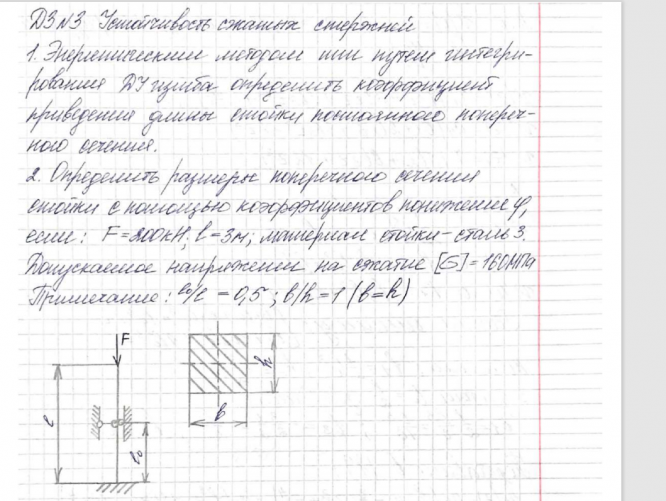 ДЗ №3 Устойчивость сжатых стержней
1. Энергетическим методом или путем интегри-
рования ДУ изгиба определить коэффициент
приведения длины стойки постоянного попереч-
ного сечения.
2. Определить размеры поперечного сечения
стойки с помощью коэффициентов понижение φ,
если: F=200кН; l=3м; материал стойки-сталь 3.
Допускаемое напряжение на сжатие [σ]=160МПа
Примечание: l₀/l = 0,5; b/h=1 (b=h)
F
l
l₀
h
b